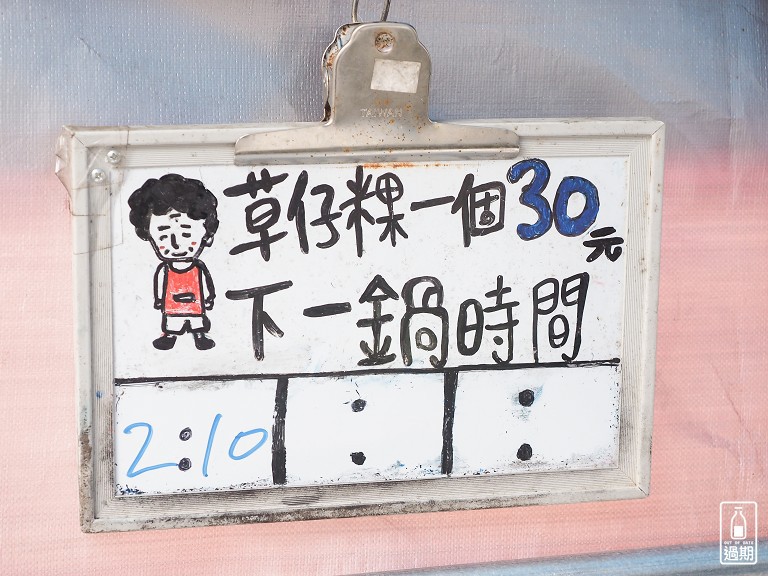 TAIWAN
草仔粿一個30元
下一鍋時間
2:10 : :
OUT OF DATE
過期